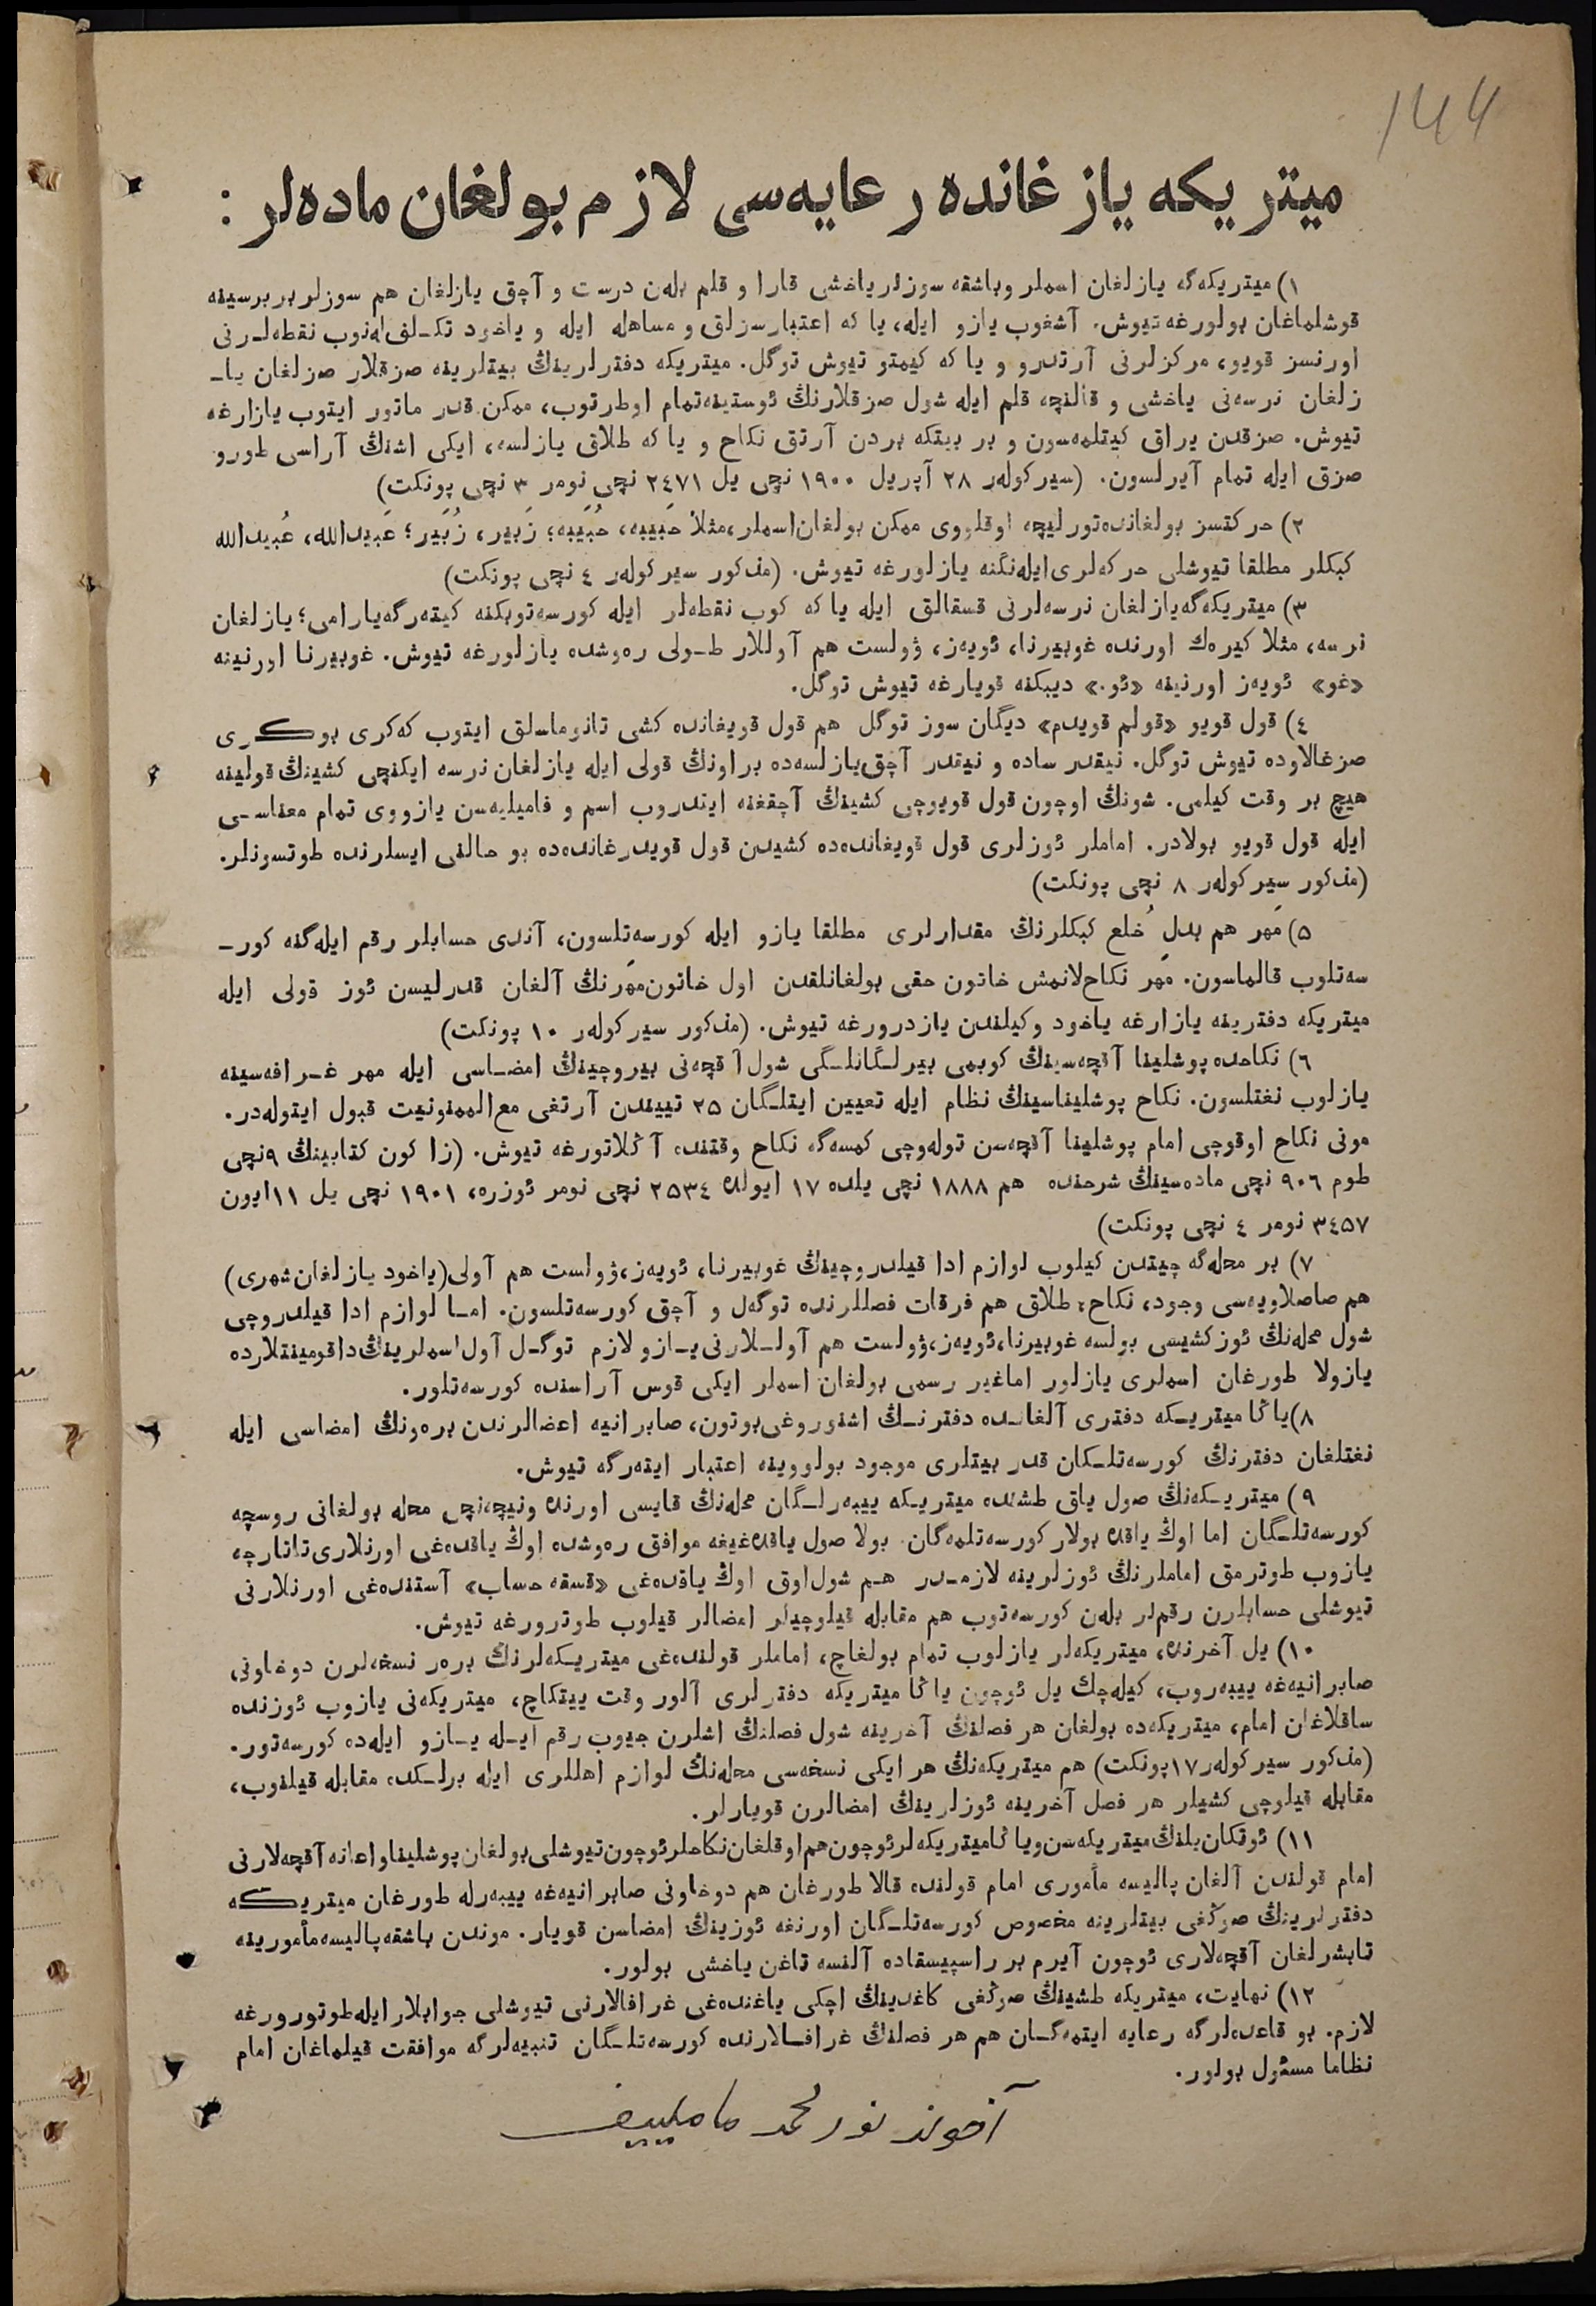 144
میتریکه یازغانده رعایه‌سی لازم بولغان ماده‌لر :
١) میتریکه‌گه یازلغان اسملر وباشقه سوزلر یاخشی قارا و قلم بله‌ن درست و آچق یازلغان هم سوزلر بر برسینه
قوشلماغان بولورغه تیوش. آشغوب یازو ایله، یا که اعتبارسزلق و مساهله ایله و یاخود تکـلف له‌نوب نقطه‌لـرنی
اورنسز قویو، مرکزلرنی آرتدرو و یا که کیمتو تیوش توگل. میتریکه دفترلرینڭ بیتلرینه صزقلار صزلغان یا‌ـ
زلغان نرسه‌نی یاخشی و قالنچه قلم ایله شول صزقلارنڭ ئوستینه‌تمام اوطرتوب، ممکن قدر ماتور ایتوب یازارغه
تیوش. صزقدن یراق کیتلمه‌سون و بر بیتکه بردن آرتق نکاح و یا که طلاق یازلسه، ایکی اشنڭ آراسی طورو
صزق ایله تمام آیرلسون. (سیرکوله‌ر ٢٨ آپریل ١٩٠٠ نچی یل ٢٤٧١ نچی نومر ٣ نچی پونکت)
٢) حرکتسز بولغانده‌تورلیچه اوقلووی ممکن بولغان‌اسملر،مثلاً حَبیبه، حُبَیبه؛ زَبیر، زُبَیر؛ عَبیدالله، عُبیدالله
کبکلر مطلقا تیوشلی حرکه‌لری‌ایله‌نگنه یازلورغه تیوش. (مذکور سیرکوله‌ر ٤ نچی پونکت)
٣) میتریکه‌گه‌یازلغان نرسه‌لرنی قسقالق ایله یا که کوب نقطه‌لر ایله کورسه‌توبکنه کیته‌رگه‌یارامی؛ یازلغان
نرسه، مثلا کیره‌ك اورنده غوبیرنا، ئویه‌ز، ؤولست هم آوللار طـولی ره‌وشده یازلورغه تیوش. غوبیرنا اورنینه
«غو» ئویه‌ز اورنینه «ئو.» دیبکنه قویارغه تیوش توگل.
٤) قول قویو «قولم قویدم» دیگان سوز توگل هم قول قویغانده کشی تانوماسلق ایتوب که‌کری بوکـری
صزغالاوده تیوش توگل. نیقدر ساده و نیقدر آچق‌یازلسه‌ده براونڭ قولی ایله یازلغان نرسه ایکنچی کشینڭ قولینه
هیچ بر وقت کیلمی. شونڭ اوچون قول قویوچی کشینڭ آچقغنه ایتدروب اسم و فامیلیه‌سن یازووی تمام معناسـی
ایله قول قویو بولادر. اماملر ئوزلری قول قویغانده‌ده کشیدن قول قویدرغانده‌ده بو حالنی ایسلرنده طوتسونلر.
(مذکور سیرکوله‌ر ٨ نچی پونکت)
٥) مَهر هم بدلِ خُلع کبکلرنڭ مقدارلری مطلقا یازو ایله کورسه‌تلسون، آندی حسابلر رقم ایله‌گنه کور‌ـ
سه‌تلوب قالماسون. مَهر نکاح‌لانمش خاتون حقی بولغانلقدن اول خاتون‌مَهرنڭ آلغان قدرلیسن ئوز قولی ایله
میتریکه دفترینه یازارغه یاخود وکیلندن یازدرورغه تیوش. (مذکور سیرکوله‌ر ١٠ پونکت)
٦) نکاحده پوشلینا آقچه‌سینڭ کوبمی بیرلـگانلـگی شول آقچه‌نی بیروچینڭ امضـاسی ایله مهر غـرافه‌سینه
یازلوب نغتلسون. نکاح پوشلیناسینڭ نظام ایله تعیین ایتلـگان ٢٥ تییندن آرتغی مع‌الممنونیت قبول ایتوله‌در.
مونی نکاح اوقوچی امام پوشلینا آقچه‌سن توله‌وچی کمسه‌گه نکاح وقتنده آڭلاتورغه تیوش. (زاکون کتابینڭ ٩نچی
طوم ٩٠٦ نچی ماده‌سینڭ شرحنده هم ١٨٨٨ نچی یلده ١٧ ایولده ٢٥٣٤ نچی نومر ئوزره، ١٩٠١ نچی یل ١١ایون
٣٤٥٧ نومر ٤ نچی پونکت)
٧) بر محله‌گه چیتدن کیلوب لوازم ادا قیلدروچینڭ غوبیرنا، ئویه‌ز،ؤولست هم آولی(یاخود یازلغان‌شهری)
هم صاصلاویه‌سی وجود، نکاح، طلاق هم فرقات فصللرنده توگه‌ل و آچق کورسه‌تلسون. امـا لوازم ادا قیلدروچی
شول محله‌نڭ ئوزکشیسی بولسه غوبیرنا،ئویه‌ز،ؤولست هم آولـلارنی یـازو لازم توگـل آول‌اسملرینڭ‌داقومینتلارده
یازولا طورغان اسملری یازلور اماغیر رسمی بولغان اسملر ایکی قوس آراسنده کورسه‌تلور.
٨)یاڭا میتریـکه دفتری آلغانـده دفترنـڭ اشنوروغی‌بوتون، صابرانیه اعضالرندن بره‌ونڭ امضاسی ایله
نغتلغان دفترنڭ کورسه‌تلـکان قدر بیتلری موجود بولووینه اعتبار ایته‌رگه تیوش.
٩) میتریـکه‌نڭ صول یاق طشنده میتریکه ییبه‌رلـگان محله‌نڭ قایسی اورنده ونیچه‌نچی محله بولغانی روسچه
کورسه‌تلـگان اما اوڭ یاقده بولار کورسه‌تلمه‌گان. بولا صول یاقده‌غیغه موافق ره‌وشده اوڭ یاقده‌غی اورنلاری‌تاتارچه
یازوب طوترمق اماملرنڭ ئوزلرینه لازمـدر هـم شول‌اوق اوڭ یاقده‌غی «قسقه حساب» آستنده‌غی اورنلارنی
تیوشلی حسابلرن رقم‌لر بله‌ن کورسه‌توب هم مقابله قیلوچیلر امضالر قیلوب طوترورغه تیوش.
١٠) یل آخرنده، میتریکه‌لر یازلوب تمام بولغاچ، اماملر قولنده‌غی میتریـکه‌لرنڭ بره‌ر نسخه‌لرن دوخاونی
صابرانیه‌غه ییبه‌روب، کیله‌چك یل ئوچون یاڭا میتریکه دفترلری آلور وقت ییتکاچ، میتریکه‌نی یازوب ئوزنده
ساقلاغان امام، میتریکه‌ده بولغان هر فصلنڭ آخرینه شول فصلنڭ اشلرن جیوب رقم ایـله یـازو ایله‌ده کورسه‌تور.
(مذکور سیرکوله‌ر١٧پونکت) هم میتریکه‌نڭ هر ایکی نسخه‌سی محله‌نڭ لوازم اهللری ایله برلـکده مقابله قیلنوب،
مقابله قیلوچی کشیلر هر فصل آخرینه ئوزلرینڭ امضالرن قویارلر.
١١) ئوتکان‌یلنڭ‌میتریکه‌سن‌ویاڭامیتریکه‌لرئوچون‌هم‌اوقلغان‌نکاحلرئوچون‌تیوشلی‌بولغان‌پوشلیناواعانه‌آقچه‌لارنی
امام قولندن آلغان پالیسه مأموری امام قولنده قالا طورغان هم دوخاونی صابرانیه‌غه ییبه‌رله طورغان میتریـکه
دفترلرینڭ صوڭغی بیتلرینه مخصوص کورسه‌تلـگان اورنغه ئوزینڭ امضاسن قویار. موندن باشقه‌پالیسه‌مأمورینه
تابشرلغان آقچه‌لاری ئوچون آیرم بر راسپیسقاده آلنسه تاغن یاخشی بولور.
١٢) نهایت، میتریکه طشینڭ صوڭغی کاغدینڭ اچکی یاغنده‌غی غرافالارنی تیوشلی جوابلار ایله‌طوتورورغه
لازم. بو قاعده‌لرگه رعایه ایتمه‌گـان هم هر فصلنڭ غرافـالارنده کورسه‌تلـگان تنبیه‌لرگه موافقت قیلماغان امام
نظاما مسئول بولور.
آخوند نورمحمد ماملییف